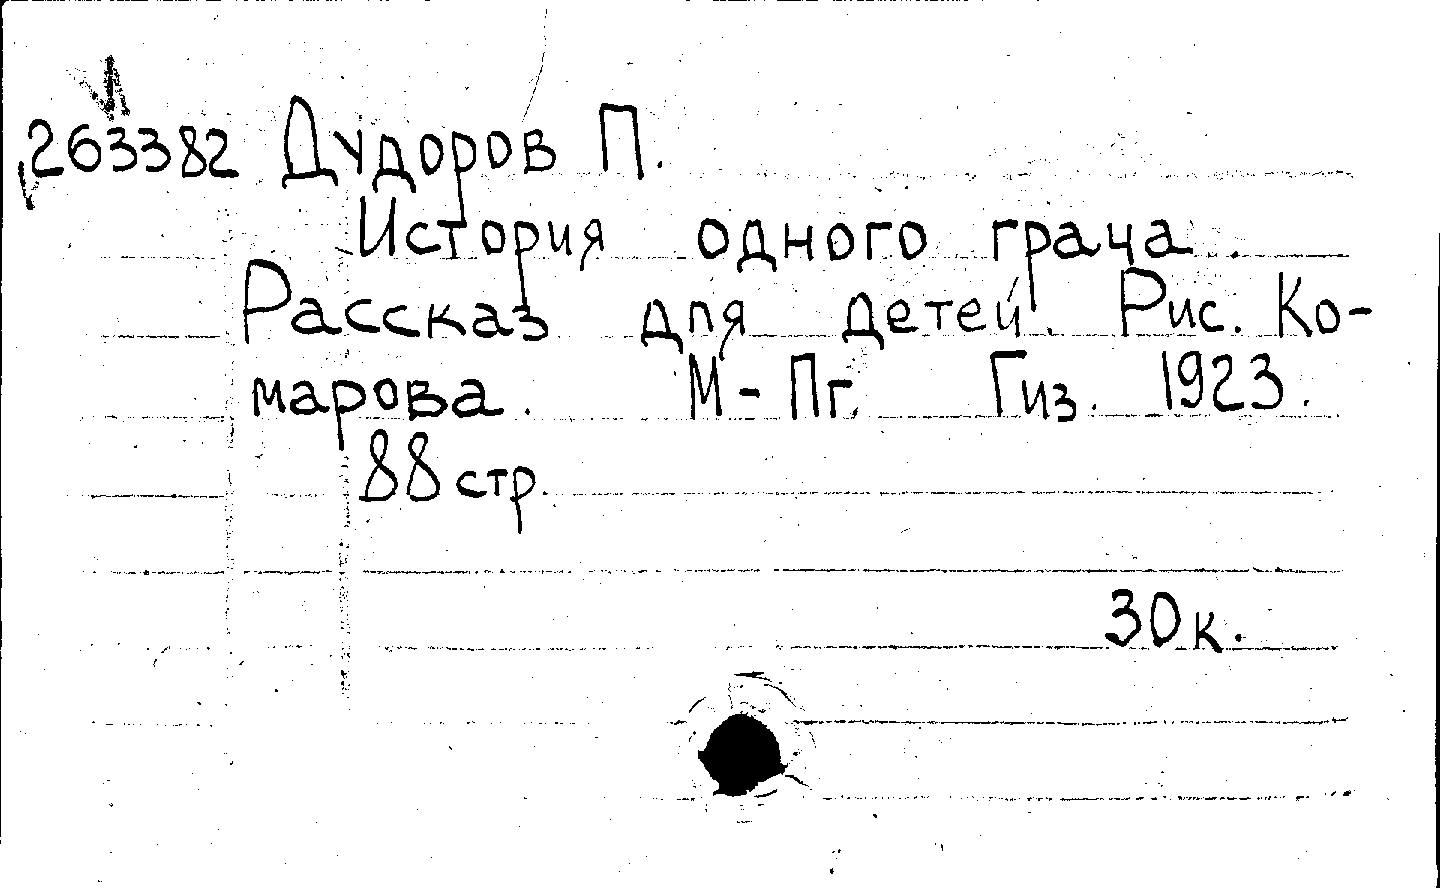 263382 Дудоров П.
История одного грача.
Рассказ для детей. Рис. Ко-
марова. М-Пг. Гиз. 1923.
88 стр.
30 к.